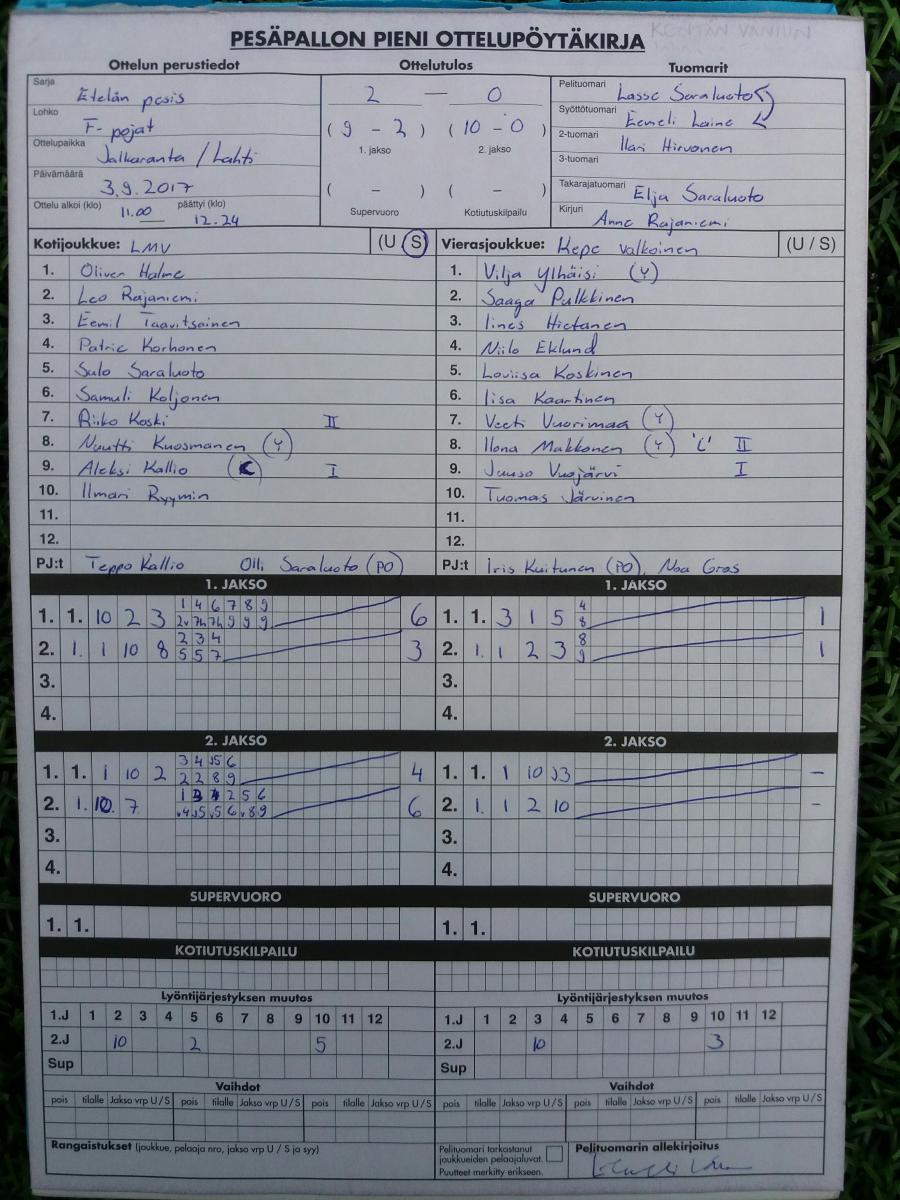 PESÄPALLON PIENI OTTELUPÖYTÄKIRJA
Ottelun perustiedot
Ottelutulos
Tuomarit
Sarja Etelän pesis
Lohko F-pojat
Ottelupaikka Jalkaranta / Lahti
Päivämäärä 3.9.2017
Ottelu alkoi (klo) 11.00 päättyi (klo) 12.24
2 — 0
( 9 - 2 ) ( 10 - 0 )
1. jakso 2. jakso
( - ) ( - )
Supervuoro Kotiutuskilpailu
Pelituomari Lasse Saraluoto
Syöttötuomari Eemeli Laine
2-tuomari Ilari Hirvonen
3-tuomari
Takarajatuomari Elja Saraluoto
Kirjuri Anne Rajaniemi
Kotijoukkue: LMV (U S)
1. Oliver Halme
2. Leo Rajaniemi
3. Eemil Taavitsainen
4. Patric Korhonen
5. Sulo Saraluoto
6. Samuli Koljonen
7. Riiko Koski II
8. Nuutti Kuosmanen (Y)
9. Aleksi Kallio (C) I
10. Ilmari Ryymin
11.
12.
PJ:t Teppo Kallio Olli Saraluoto (PO)
Vierasjoukkue: Kepe valkoinen (U / S)
1. Vilja Ylhäisi (Y)
2. Saaga Pulkkinen
3. Iines Hietanen
4. Niilo Eklund
5. Loviisa Koskinen
6. Iisa Kaartinen
7. Veeti Vuorimaa (Y)
8. Ilona Makkonen (Y) 'C' II
9. Juuso Vuojärvi I
10. Tuomas Järvinen
11.
12.
PJ:t Iris Kuitunen (PO), Noa Gros
1. JAKSO
1. 1. 10 2 3 1 4 6 7 8 9 6
9 9 9
2. 1. 1 10 8 2 3 4 3
5 5 7
3.
4.
1. JAKSO
1. 1. 3 1 5 4 1
8
2. 1. 1 2 3 8 1
9
3.
4.
2. JAKSO
1. 1. 1 10 2 3 4 5 6 4
2 2 8 9
2. 1. 10. 7 2 5 6 6
3.
4.
2. JAKSO
1. 1. 1 10 3 -
2. 1. 1 2 10 -
3.
4.
SUPERVUORO
1. 1.
SUPERVUORO
1. 1.
KOTIUTUSKILPAILU
KOTIUTUSKILPAILU
Lyöntijärjestyksen muutos
1.J 1 2 3 4 5 6 7 8 9 10 11 12
2.J 10 2 5
Sup
Lyöntijärjestyksen muutos
1.J 1 2 3 4 5 6 7 8 9 10 11 12
2.J 10 3
Sup
Vaihdot
pois tilalle Jakso vrp U / S pois tilalle Jakso vrp U / S pois tilalle Jakso vrp U / S
Vaihdot
pois tilalle Jakso vrp U / S pois tilalle Jakso vrp U / S pois tilalle Jakso vrp U / S
Rangaistukset (joukkue, pelaaja nro, jakso vrp U / S ja syy)
Pelituomari tarkastanut
joukkueiden pelaajaluvat.
Puutteet merkitty erikseen.
Pelituomarin allekirjoitus